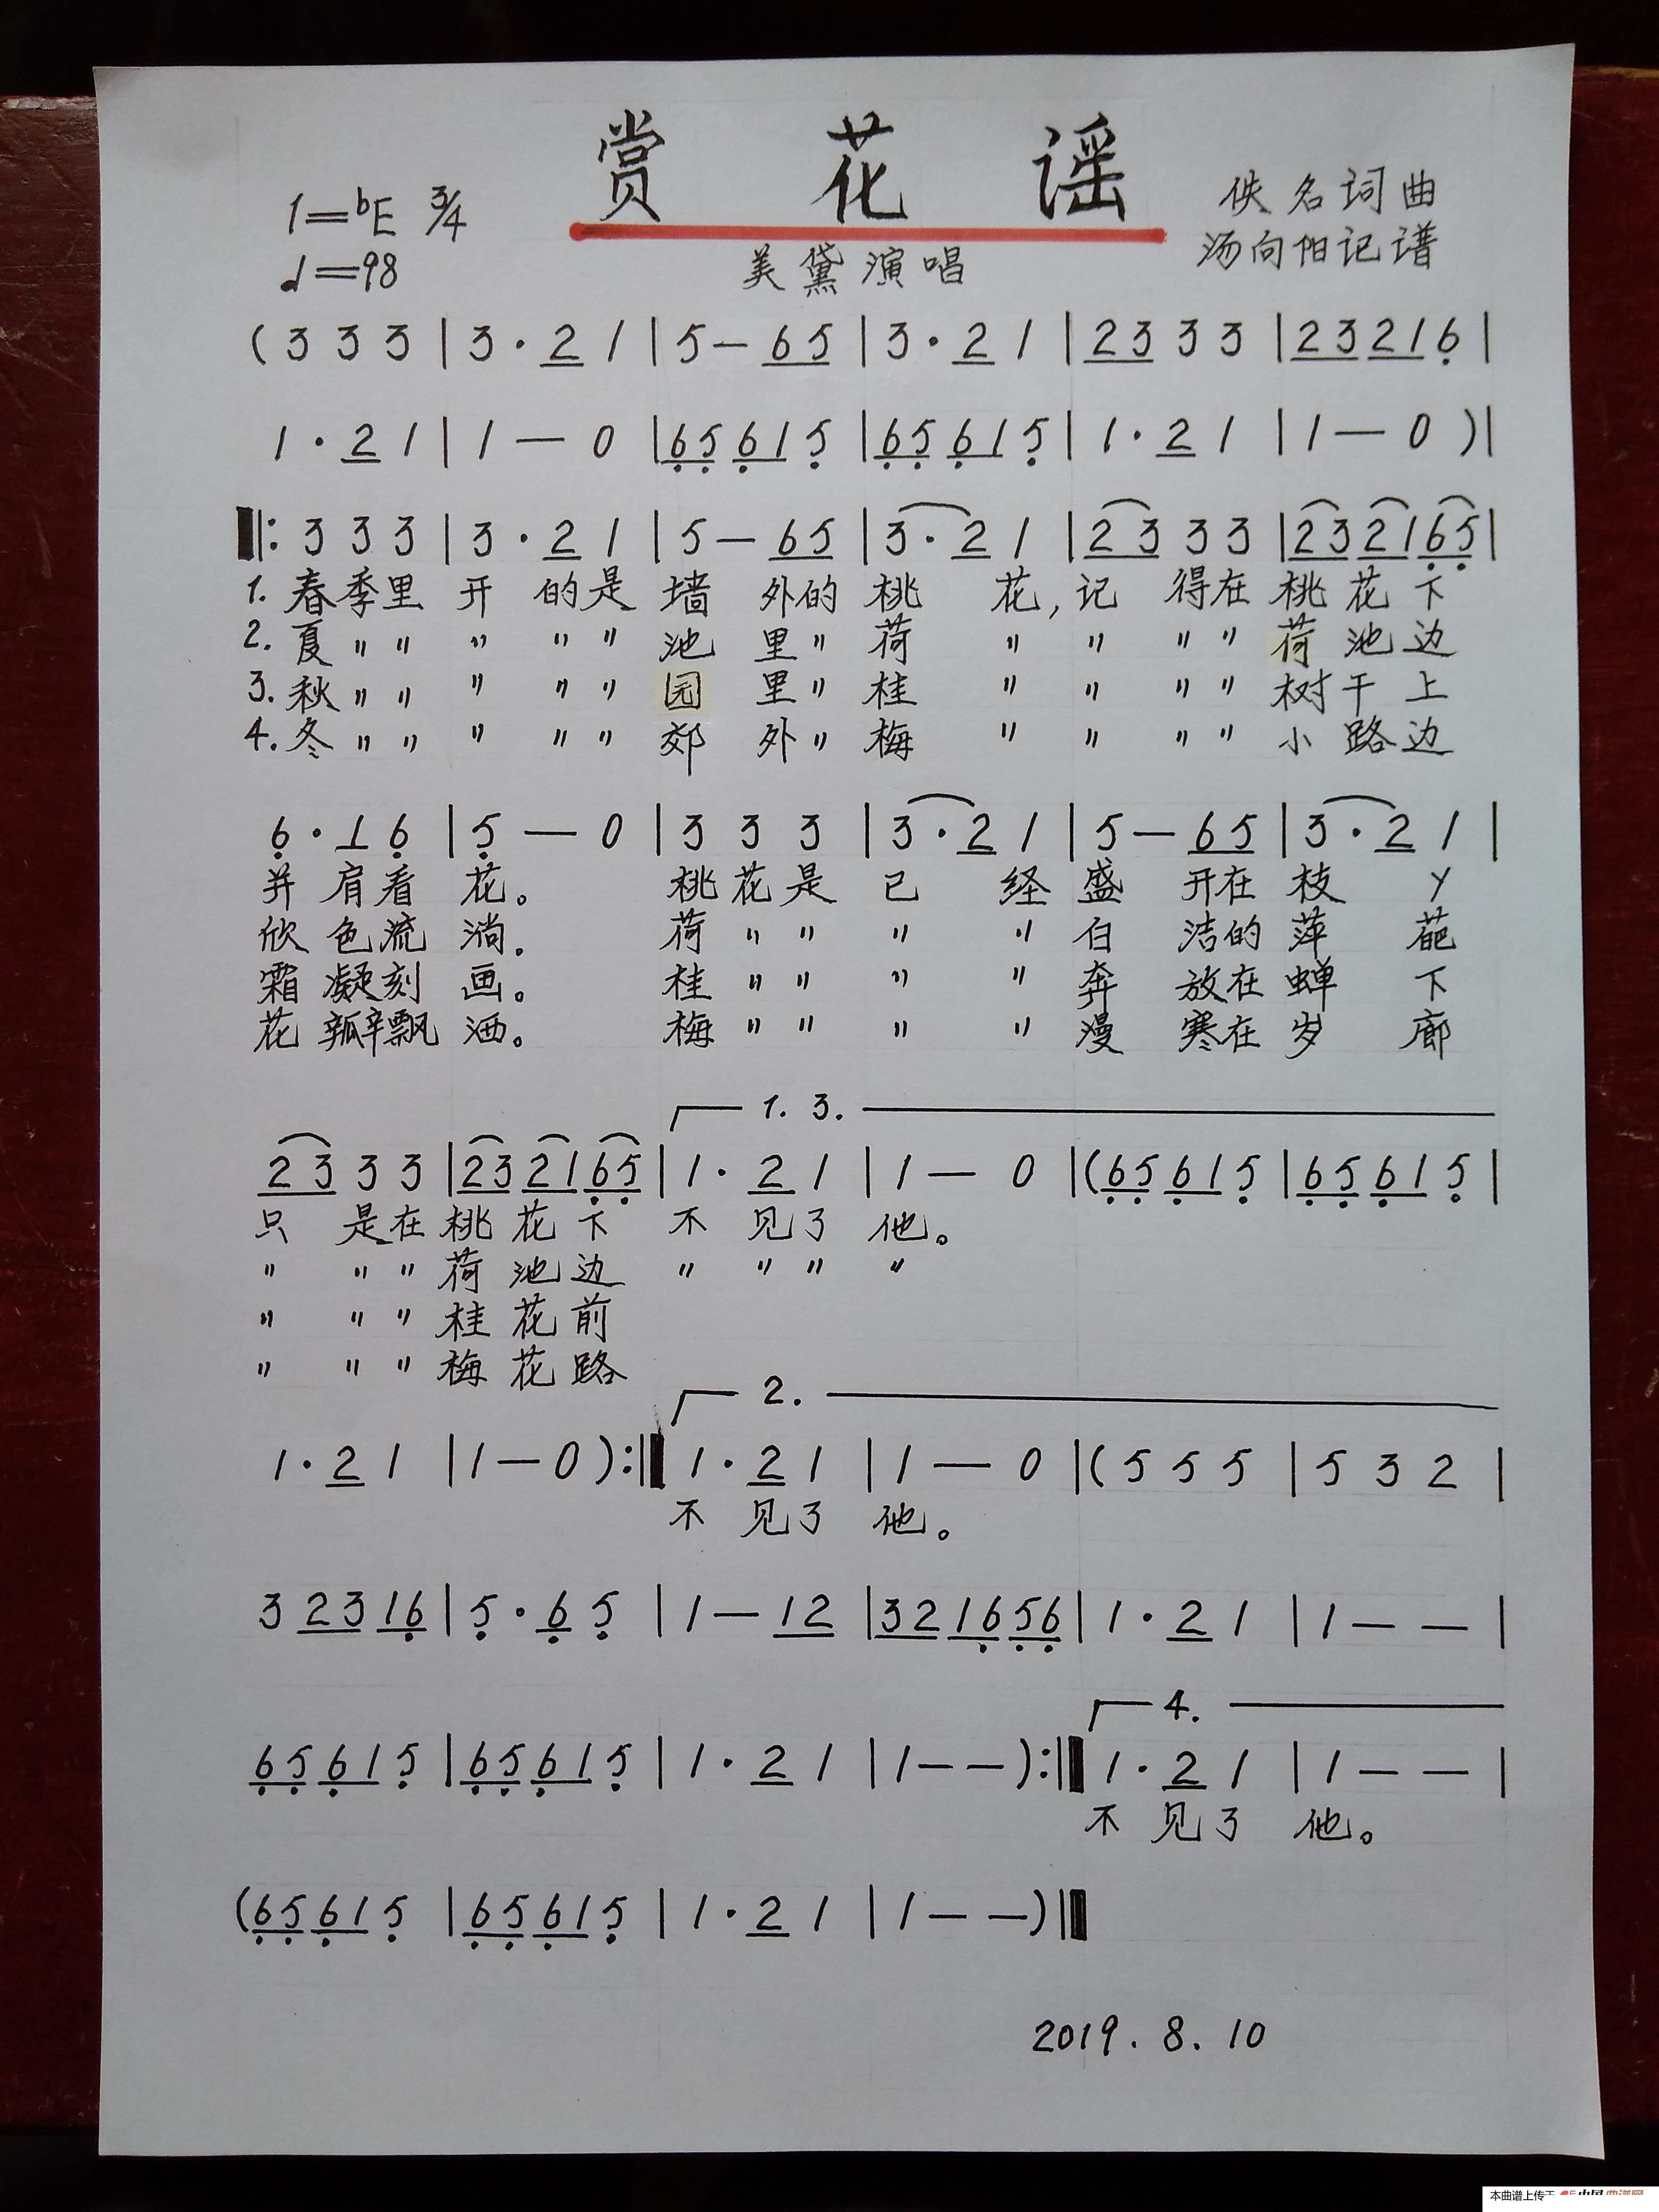 赏 花 谣
1=♭E 3/4
佚名词曲
♩=98
美黛演唱
汤向阳记谱
( 3 3 3 | 3 · 2 1 | 5 — 6 5 | 3 · 2 1 | 2 3 3 3 | 2 3 2 1 6 |
1 · 2 1 | 1 — 0 | 6 5 6 1 5 | 6 5 6 1 5 | 1 · 2 1 | 1 — 0 ) |
‖: 3 3 3 | 3 · 2 1 | 5 — 6 5 | 3 · 2 1 | 2 3 3 3 | 2 3 2 1 6 5 |
1. 春季里 开 的是 墙 外的 桃 花, 记 得在 桃花下
2. 夏 〃 〃 〃 〃 〃 池 里 〃 荷 〃 〃 〃 〃 荷池边
3. 秋 〃 〃 〃 〃 〃 园 里 〃 桂 〃 〃 〃 〃 树干上
4. 冬 〃 〃 〃 〃 〃 郊 外 〃 梅 〃 〃 〃 〃 小路边
6 · 1 6 | 5 — 0 | 3 3 3 | 3 · 2 1 | 5 — 6 5 | 3 · 2 1 |
并 肩看 花。 桃花是 已 经 盛 开在 枝 丫
欣 色流 淌. 荷 〃 〃 〃 〃 白 洁的 萍 葩
霜 凝刻 画。 桂 〃 〃 〃 〃 奔 放在 蝉 下
花 瓣飘 洒。 梅 〃 〃 〃 〃 漫 寒在 岁 廊
1. 3.
2 3 3 3 | 2 3 2 1 6 5 | 1 · 2 1 | 1 — 0 | ( 6 5 6 1 5 | 6 5 6 1 5 |
只 是在 桃花下 不 见了 他。
〃 〃 〃 荷池边 〃 〃 〃 〃
〃 〃 〃 桂花前
〃 〃 〃 梅花路
2.
1 · 2 1 | 1 — 0 ) :‖ 1 · 2 1 | 1 — 0 | ( 5 5 5 | 5 3 2 |
不 见了 他。
3 2 3 1 6 | 5 · 6 5 | 1 — 1 2 | 3 2 1 6 5 6 | 1 · 2 1 | 1 — — |
4.
6 5 6 1 5 | 6 5 6 1 5 | 1 · 2 1 | 1 — — ) :‖ 1 · 2 1 | 1 — — |
不 见了 他。
( 6 5 6 1 5 | 6 5 6 1 5 | 1 · 2 1 | 1 — — ) ‖
2019. 8. 10
本曲谱上传于